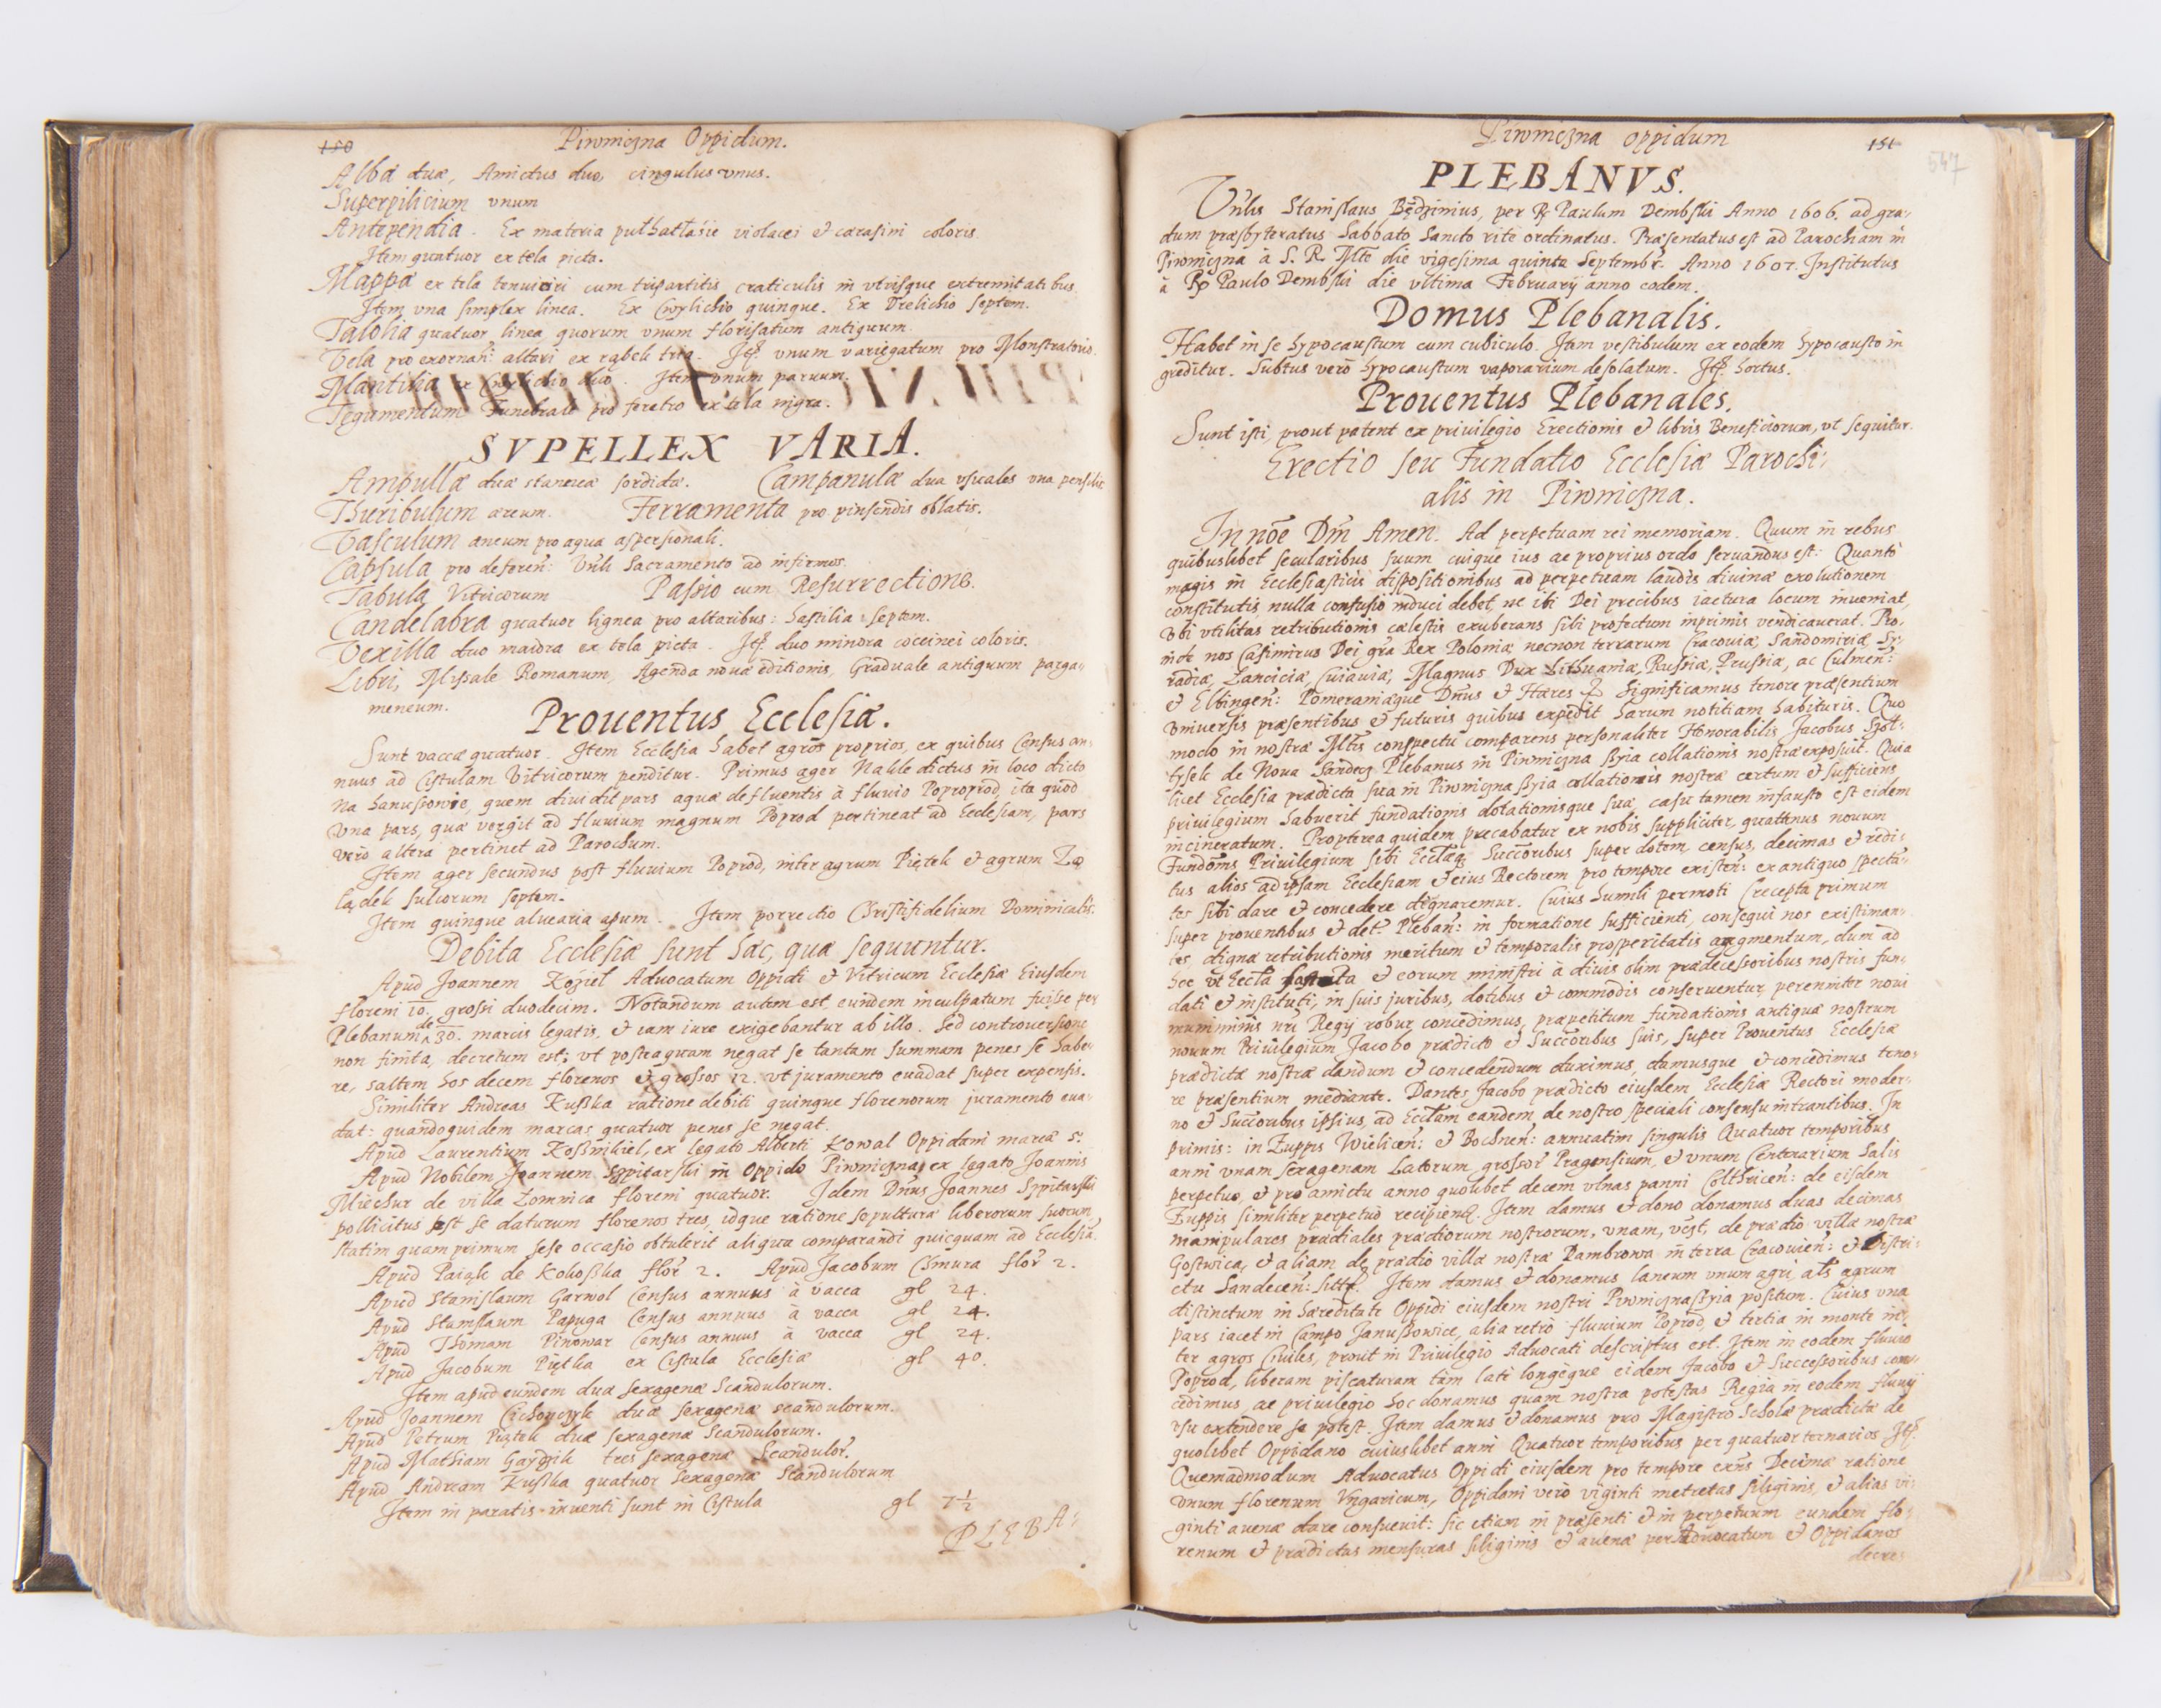 150
Piwniczna Oppidum.
Albæ duæ, Amictus duo, cingulus vnus.
Superpilicium vnum
Antependia. Ex materia puthattásie violacei & carasini coloris.
Item quatuor ex tela picta.
Mappæ ex tela tenuiori cum tripartitis craticulis in vtrisque extremitatibus
Item vna simplex linea. Ex Cwylichio quinque. Ex Drelichio septem.
Talolia quatuor linea quorum vnum florisatum antiquum.
Vela pro exornan: altari ex rąbek tria. Itē vnum variegatum pro Monstratorio.
Mantilia ex Cwylichio duo. Item vnum paruum.
Tegumentum Funebrale pro feretro ex tela nigra.
SVPELLEX VARIA.
Ampullæ duæ stanneæ sordidæ. Campanulæ duæ vsuales vna pensilis
Thuribulum æreum. Ferramenta pro pinsendis oblatis.
Vasculum æneum pro aqua aspersionali.
Capsula pro deferen: Vnli Sacramento ad infirmos.
Tabula Vitricorum Passio cum Resurrectione.
Candelabra quatuor lignea pro altaribus: hastilia septem.
Vexilla duo maiora ex tela picta. Itē duo minora coccinei coloris.
Libri, Missale Romanum, Agenda nouæ editionis, Graduale antiquum parga-
meneum.
Prouentus Ecclesiæ.
Sunt vaccæ quatuor. Item Ecclesia habet agros proprios, ex quibus Census an-
nuus ad Cistulam Vitricorum penditur. Primus ager Nakle dictus in loco dicto
Na hanussowie, quem diuidit pars aquæ defluentis à fluuio Poproprod, ita quod
Vna pars, quæ vergit ad fluuium magnum Poprod pertineat ad Ecclesiam, pars
verò altera pertinet ad Parochum.
Item ager secundus post fluuium Poprod, inter agrum Piętek & agrum Za
lądek sulcorum septem.
Item quinque aluearia apum. Item porrectio Christifidelium Dominicalis.
Debita Ecclesiæ sunt hæc, quæ sequuntur.
Apud Joannem Kozieł Aduocatum Oppidi & Vitricum Ecclesiæ Eiusdem
floreni 10. grossi duodecim. Notandum autem est eundem inculpatum fuisse per
Plebanum de 30. marcis legatis, & iam iure exigebantur ab illo. Sed controuersione
non finita, decretum est; vt postquam negat se tantam summam penes se habe-
re, saltem hos decem florenos & grossos 12. vt juramento euadat super expensis.
Similiter Andreas Kuszka ratione debiti quinque florenorum juramento eua-
dat: quandoquidem marcas quatuor penes se negat.
Apud Laurentium Koszmikiel, ex legato Alberti Kowal Oppidani marcæ 5.
Apud Nobilem Joannem Szpitarski in Oppido Piwniczna, ex legato Joannis
Miechur de villa Łomnica floreni quatuor. Idem Dnus Joannes Szpitarski
pollicitus est se daturum florenos tres, idque ratione sepulturæ liberorum suorum
statim quam primum sese occasio obtulerit aliqua comparandi quicquam ad Ecclesiā.
Apud Paiąk de Kokoszka flor 2. Apud Jacobum Chmura flor 2.
Apud Stanislaum Garwol Census annuus à vacca gl 24.
Apud Stanislaum Papuga Census annuus à vacca gl 24.
Apud Thomam Pinowar Census annuus à vacca gl 24.
Apud Jacobum Piętka ex Cistula Ecclesiæ gl 40.
Item apud eundem duæ sexagenæ Scandulorum.
Apud Joannem Cichonczyk duæ sexagenæ scandulorum.
Apud Petrum Piątek duæ sexagenæ Scandulorum.
Apud Mathiam Gaydzik tres sexagenæ Scandulor.
Apud Andream Kuszka quatuor sexagenæ Scandulorum
Item in paratis inuenti sunt in Cistula gl 7½
PLEBA-
Piwniczna oppidum
151
547
PLEBANVS.
Vnlis Stanislaus Będzinius, per R. Paulum Dembski Anno 1606. ad gra-
dum præsbyteratus Sabbato Sancto rite ordinatus. Præsentatus est ad Parochiam in
Piwniczna à S. R. Mtte die vigesima quinta Septembr. Anno 1607. Institutus
à R. Paulo Dembski die vltima Februarij anno eodem.
Domus Plebanalis.
Habet in se hypocaustum cum cubiculo. Item vestibulum ex eodem hypocausto in
greditur. Subtus verò hypocaustum vaporarium desolatum. Itē hortus.
Prouentus Plebanales.
Sunt isti, prout patent ex priuilegio Erectionis & libris Beneficiorum, vt sequitur.
Erectio seu Fundatio Ecclesiæ Parochi-
alis in Piwniczna.
In nōe Dni Amen. Ad perpetuam rei memoriam. Quum in rebus
quibuslibet secularibus suum cuique ius ac proprius ordo seruandus est: Quantò
magis in Ecclesiasticis dispositionibus ad perpetuam laudis diuinæ exolutionem
constitutis nulla confusio induci debet, ne ibi Dei precibus iactura locum inueniat,
Vbi vtilitas retributionis cælestis exuberans sibi profectum inprimis vendicauerat. Pro-
inde nos Casimirus Dei gra Rex Poloniæ necnon terrarum Cracouiæ, Sandomiriæ, Sy-
radiæ, Lanciciæ, Cuiauiæ, Magnus Dux Lithuaniæ, Russiæ, Prussiæ, ac Culmen:
& Elbingen: Pomeraniæque Dnus & Hæres Significamus tenore præsentium
Vniuersis præsentibus & futuris quibus expedit harum notitiam habituris. Quo
modo in nostræ Mtis conspectu comparens personaliter Honorabilis Jacobus Szot-
tysek de Noua Sandecz Plebanus in Piwniczna Szyia collationis nostræ exposuit. Quia
licet Ecclesia prædicta sua in Piwniczna Szyia collationis nostræ certum & sufficiens
priuilegium habuerit fundationis dotationisque suæ, casu tamen infausto est eidem
incineratum. Propterea quidem precabatur ex nobis suppliciter, quatenus nouum
Fundōnis Priuilegium sibi Ecclæq Succoribus super dotem census, decimas & redi-
tus alios ad ipsam Ecclesiam & eius Rectorem pro tempore existen: ex antiquo specta-
tes sibi dare & concedere dignaremur. Cuius humili permoti (recepta primum
super prouentibus & det Pleban: informatione sufficienti, consequi nos existiman-
tes digna retributionis meritum & temporalis prosperitatis augmentum, dum ad
hec vt Eccla & eorum ministri à diuis olim prædecessoribus nostris fun-
dati & instituti, in suis juribus, dotibus & commodis conseruentur, perenniter noui
muniminis nri Regij robur concedimus, præpetitum fundationis antiquæ nostrum
nouum Priuilegium Jacobo prædicto & Succoribus suis, super Prouentus Ecclesiæ
prædictæ nostræ dandum & concedendum duximus, damusque & concedimus teno-
re præsentium mediante. Dantes Jacobo prædicto eiusdem Ecclesiæ Rectori moder-
no & Succoribus ipsius, ad Ecclam eandem de nostro speciali consensu intrantibus. In
primis: in Zuppis Wielicen: & Bochnen: annuatim singulis Quatuor temporibus
anni vnam sexagenam Latorum grossor Pragensium, & vnum Centenarium Salis
perpetuo, & pro amictu anno quolibet decem vlnas panni Colthricen: de eisdem
Zuppis similiter perpetuò recipiend. Item damus & dono donamus duas decimas
manipulares prædiales prædiorum nostrorum, vnam, vest, de prædio villæ nostræ
Gostwica, & aliam de prædio villæ nostræ Dambrowa in terra Cracouien: & Distri-
ctu Sandecen: sitte. Item damus & donamus laneum vnum agri, als agrum
distinctum in hæreditate Oppidi eiusdem nostri Piwniczna Szyia positum. Cuius vna
pars iacet in Campo Januszowice, alia retrò fluuium Poprod, & tertia in monte in-
ter agros Ciuiles, prout in Priuilegio Aduocati descriptus est. Item in eodem fluuio
Poprod, liberam piscaturam tàm latè longèque eidem Jacobo & Successoribus con-
cedimus, ac priuilegio hoc donamus quam nostra potestas Regia in eodem fluuij
vsu extendere se potest. Item damus & donamus pro Magistro Scholæ prædictæ de
quolibet Oppidano cuiuslibet anni Quatuor temporibus per quatuor ternarios Itē
Quemadmodum Aduocatus Oppidi eiusdem pro tempore exns Decimæ ratione
Vnum florenum Vngaricum, Oppidani verò viginti metretas siliginis, & alias vi-
ginti auenæ dare consueuit: sic etiam in præsenti & in perpetuum eundem flo-
renum & prædictas mensuras siliginis & auenæ per Aduocatum & Oppidanos
decre